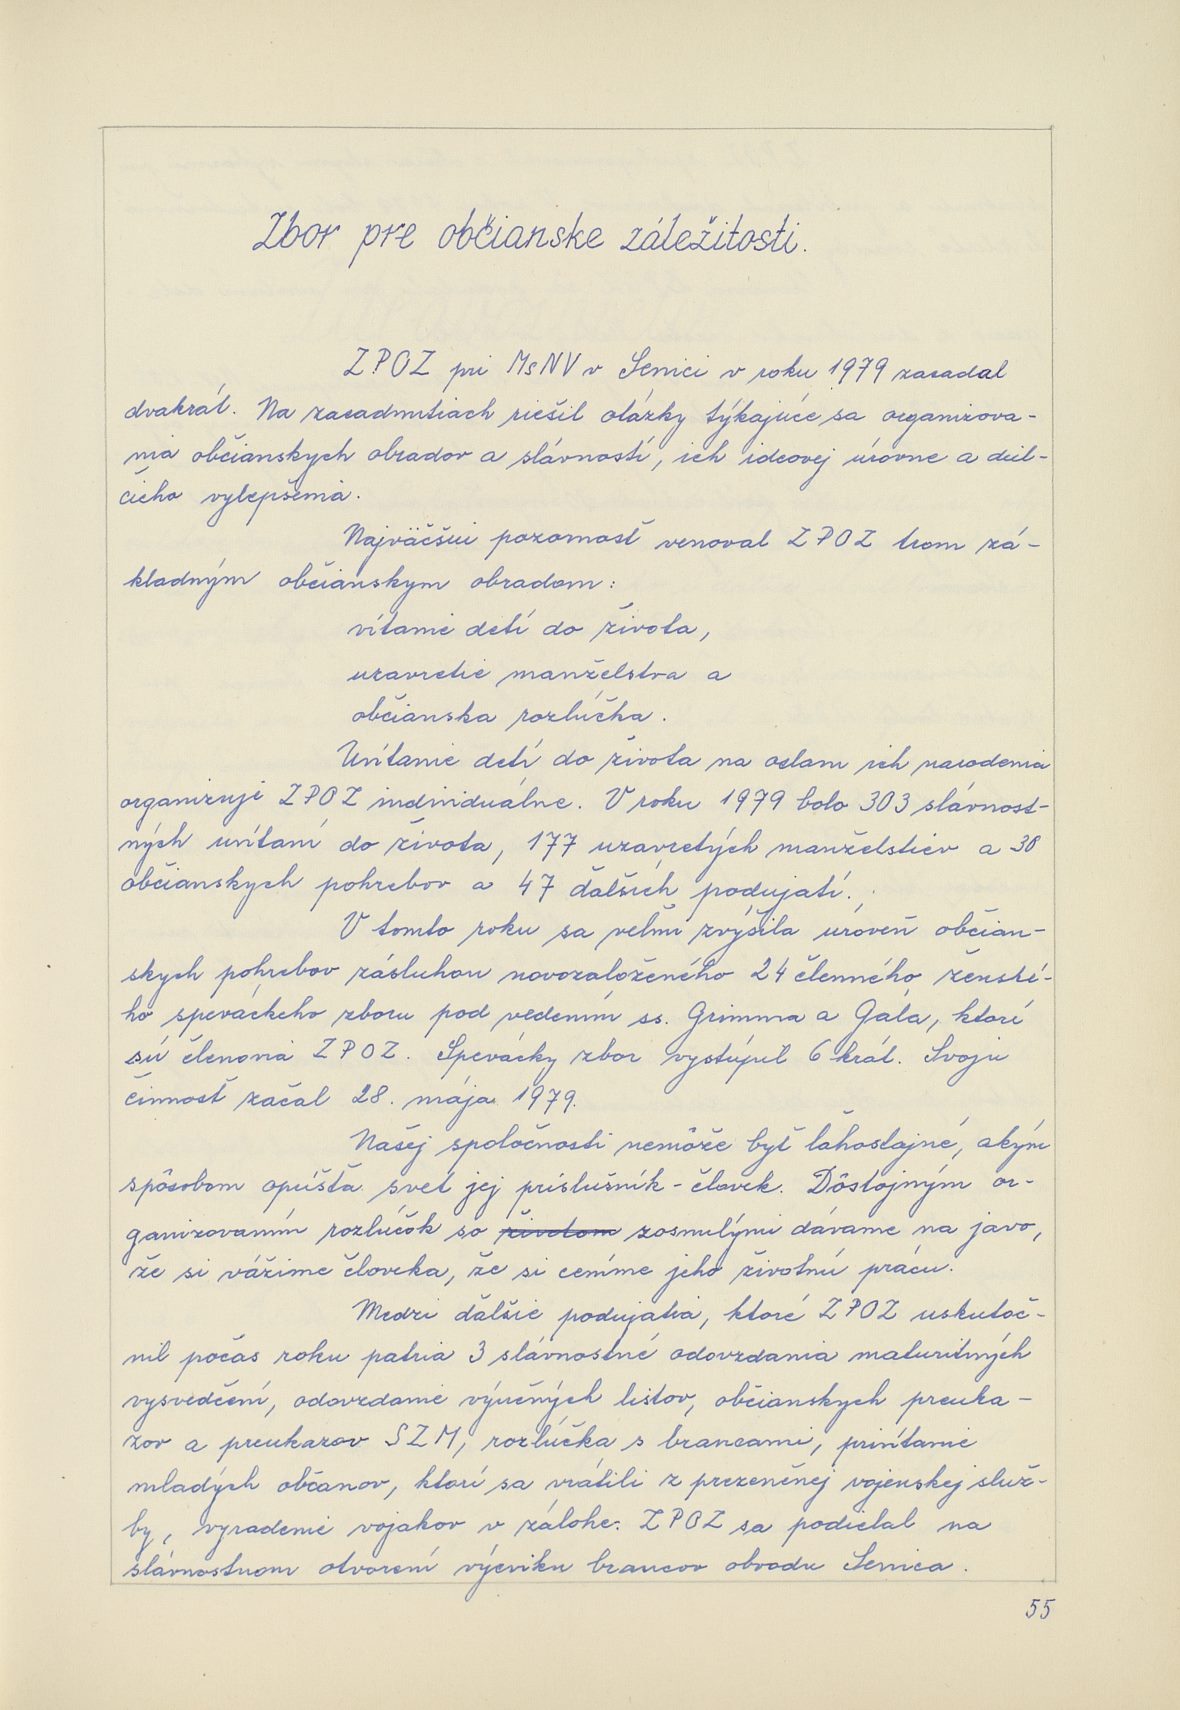 Zbor pre občianske záležitosti.
ZPOZ pri MsNV v Senici v roku 1979 zasadal
dvakrát. Na zasadnutiach riešil otázky týkajúce sa organizova-
nia občianskych obradov a slávností, ich ideovej úrovne a ďal-
šieho vylepšenia.
Najväčšiu pozornosť venoval ZPOZ trom zá-
kladným občianskym obradom:
vítanie detí do života,
uzavretie manželstva a
občianska rozlúčka.
Uvítanie detí do života na oslavu ich narodenia
organizuje ZPOZ individuálne. V roku 1979 bolo 303 slávnost-
ných uvítaní do života, 177 uzavretých manželstiev a 38
občianskych pohrebov a 47 ďalších podujatí.
V tomto roku sa veľmi zvýšila úroveň občian-
skych pohrebov zásluhou novozaloženého 24 členného ženské-
ho speváckeho zboru pod vedením ss. Grimma a Gála, ktorí
sú členovia ZPOZ. Spevácky zbor vystúpil 6 krát. Svoju
činnosť začal 28. mája 1979.
Našej spoločnosti nemôže byť ľahostajné, akým
spôsobom opúšťa svet jej príslušník - človek. Dôstojným or-
ganizovaním rozlúčok so životom zosnulými dávame na javo,
že si vážime človeka, že si ceníme jeho životnú prácu.
Medzi ďalšie podujatia, ktoré ZPOZ uskutoč-
nil počas roku patria 3 slávnostné odovzdania maturitných
vysvedčení, odovzdanie výučných listov, občianskych preuka-
zov a preukazov SZM, rozlúčka s brancami, privítanie
mladých občanov, ktorí sa vrátili z prezenčnej vojenskej služ-
by, vyradenie vojakov v zálohe. ZPOZ sa podieľal na
slávnostnom otvorení výcviku brancov obvodu Senica.
55